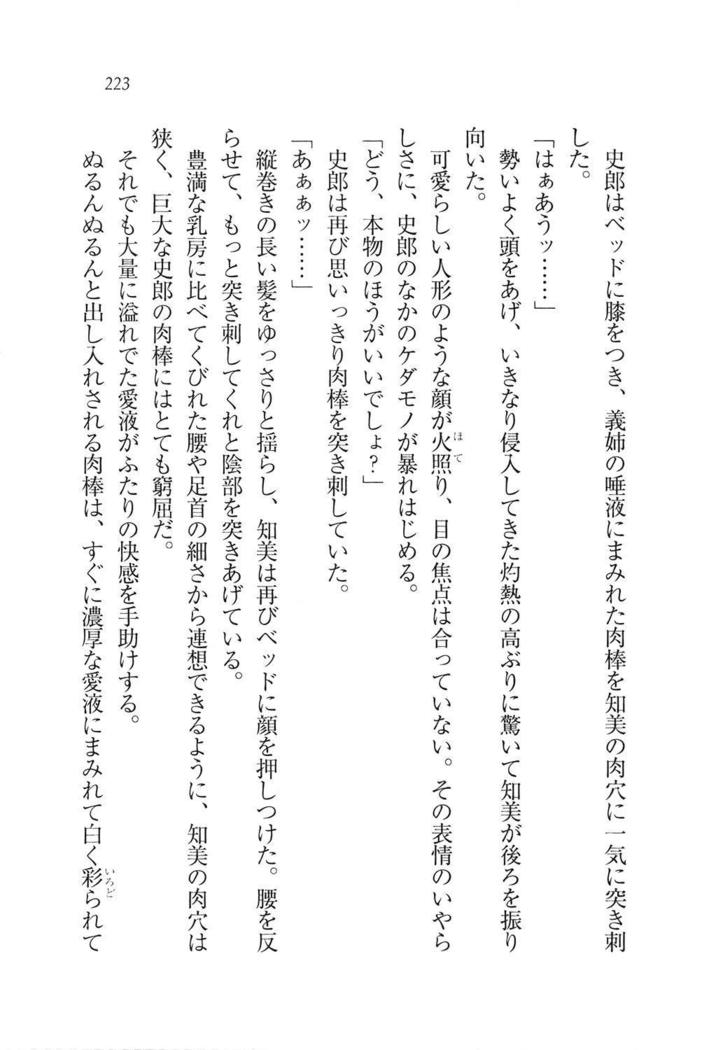 223
史郎はベッドに膝をつき、義姉の唾液にまみれた肉棒を知美の肉穴に一気に突き刺
した。
「はぁあうッ……」
勢いよく頭をあげ、いきなり侵入してきた灼熱の高ぶりに驚いて知美が後ろを振り
向いた。
ほて
可愛らしい人形のような顔が火照り、目の焦点は合っていない。その表情のいやら
しさに、史郎のなかのケダモノが暴れはじめる。
「どう、本物のほうがいいでしょ?」
史郎は再び思いっきり肉棒を突き刺していた。
「あぁぁッ……」
縦巻きの長い髪をゆっさりと揺らし、知美は再びベッドに顔を押しつけた。腰を反
らせて、もっと突き刺してくれと陰部を突きあげている。
豊満な乳房に比べてくびれた腰や足首の細さから連想できるように、知美の肉穴は
狭く、巨大な史郎の肉棒にはとても窮屈だ。
それでも大量に溢れでた愛液がふたりの快感を手助けする。
いろど
ぬるんぬるんと出し入れされる肉棒は、すぐに濃厚な愛液にまみれて白く彩られて